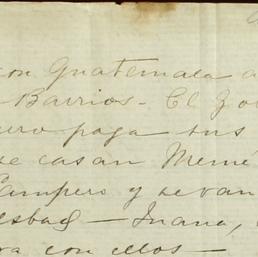 con Guatemala a
Barrios - El
paga sus
se casan Memé
Campero y se van
- Juana,
con ellos -